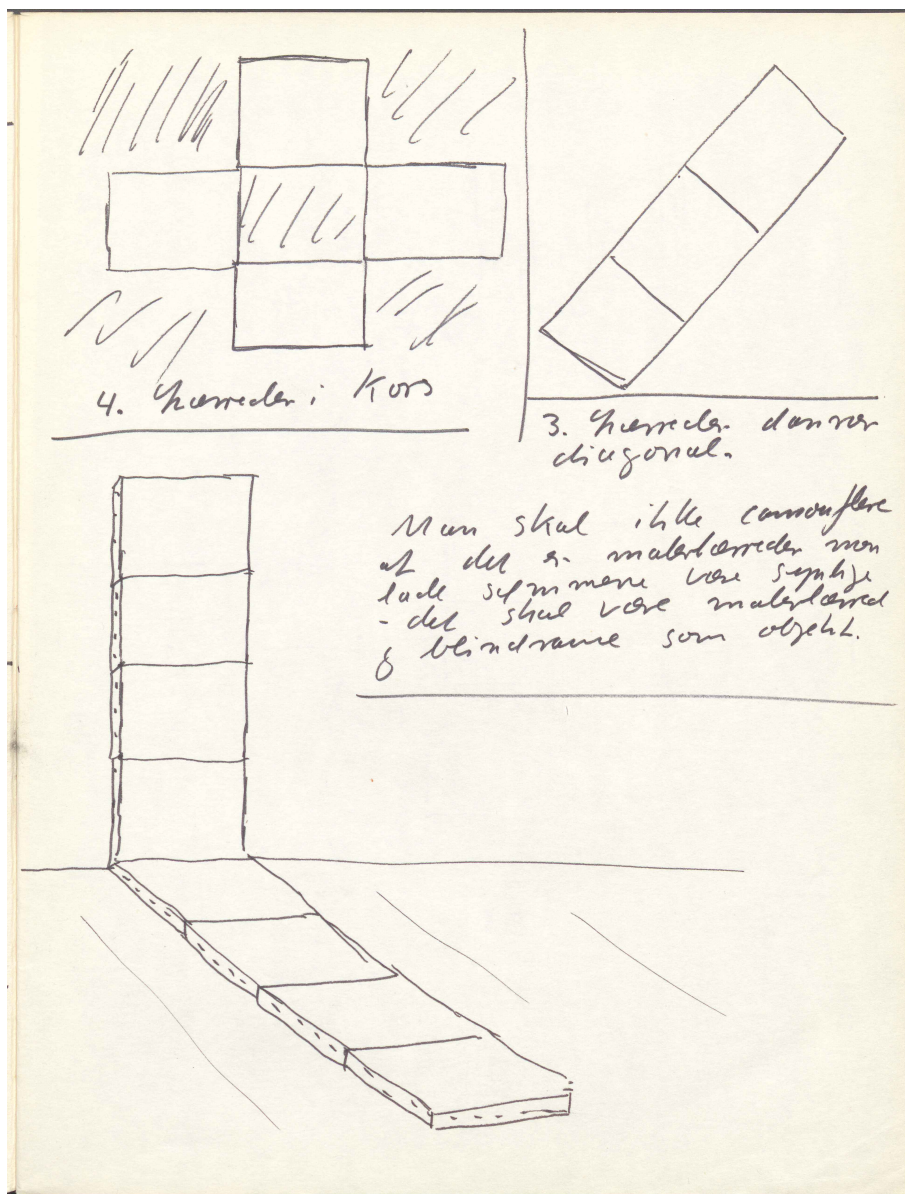 4. lærreder i Kors
3. lærreder danner
diagonal.
Man skal ikke camouflere
at det er malerlærreder men
lade sømmene være synlige
- det skal være malerlærred
& blindrame som objekt.